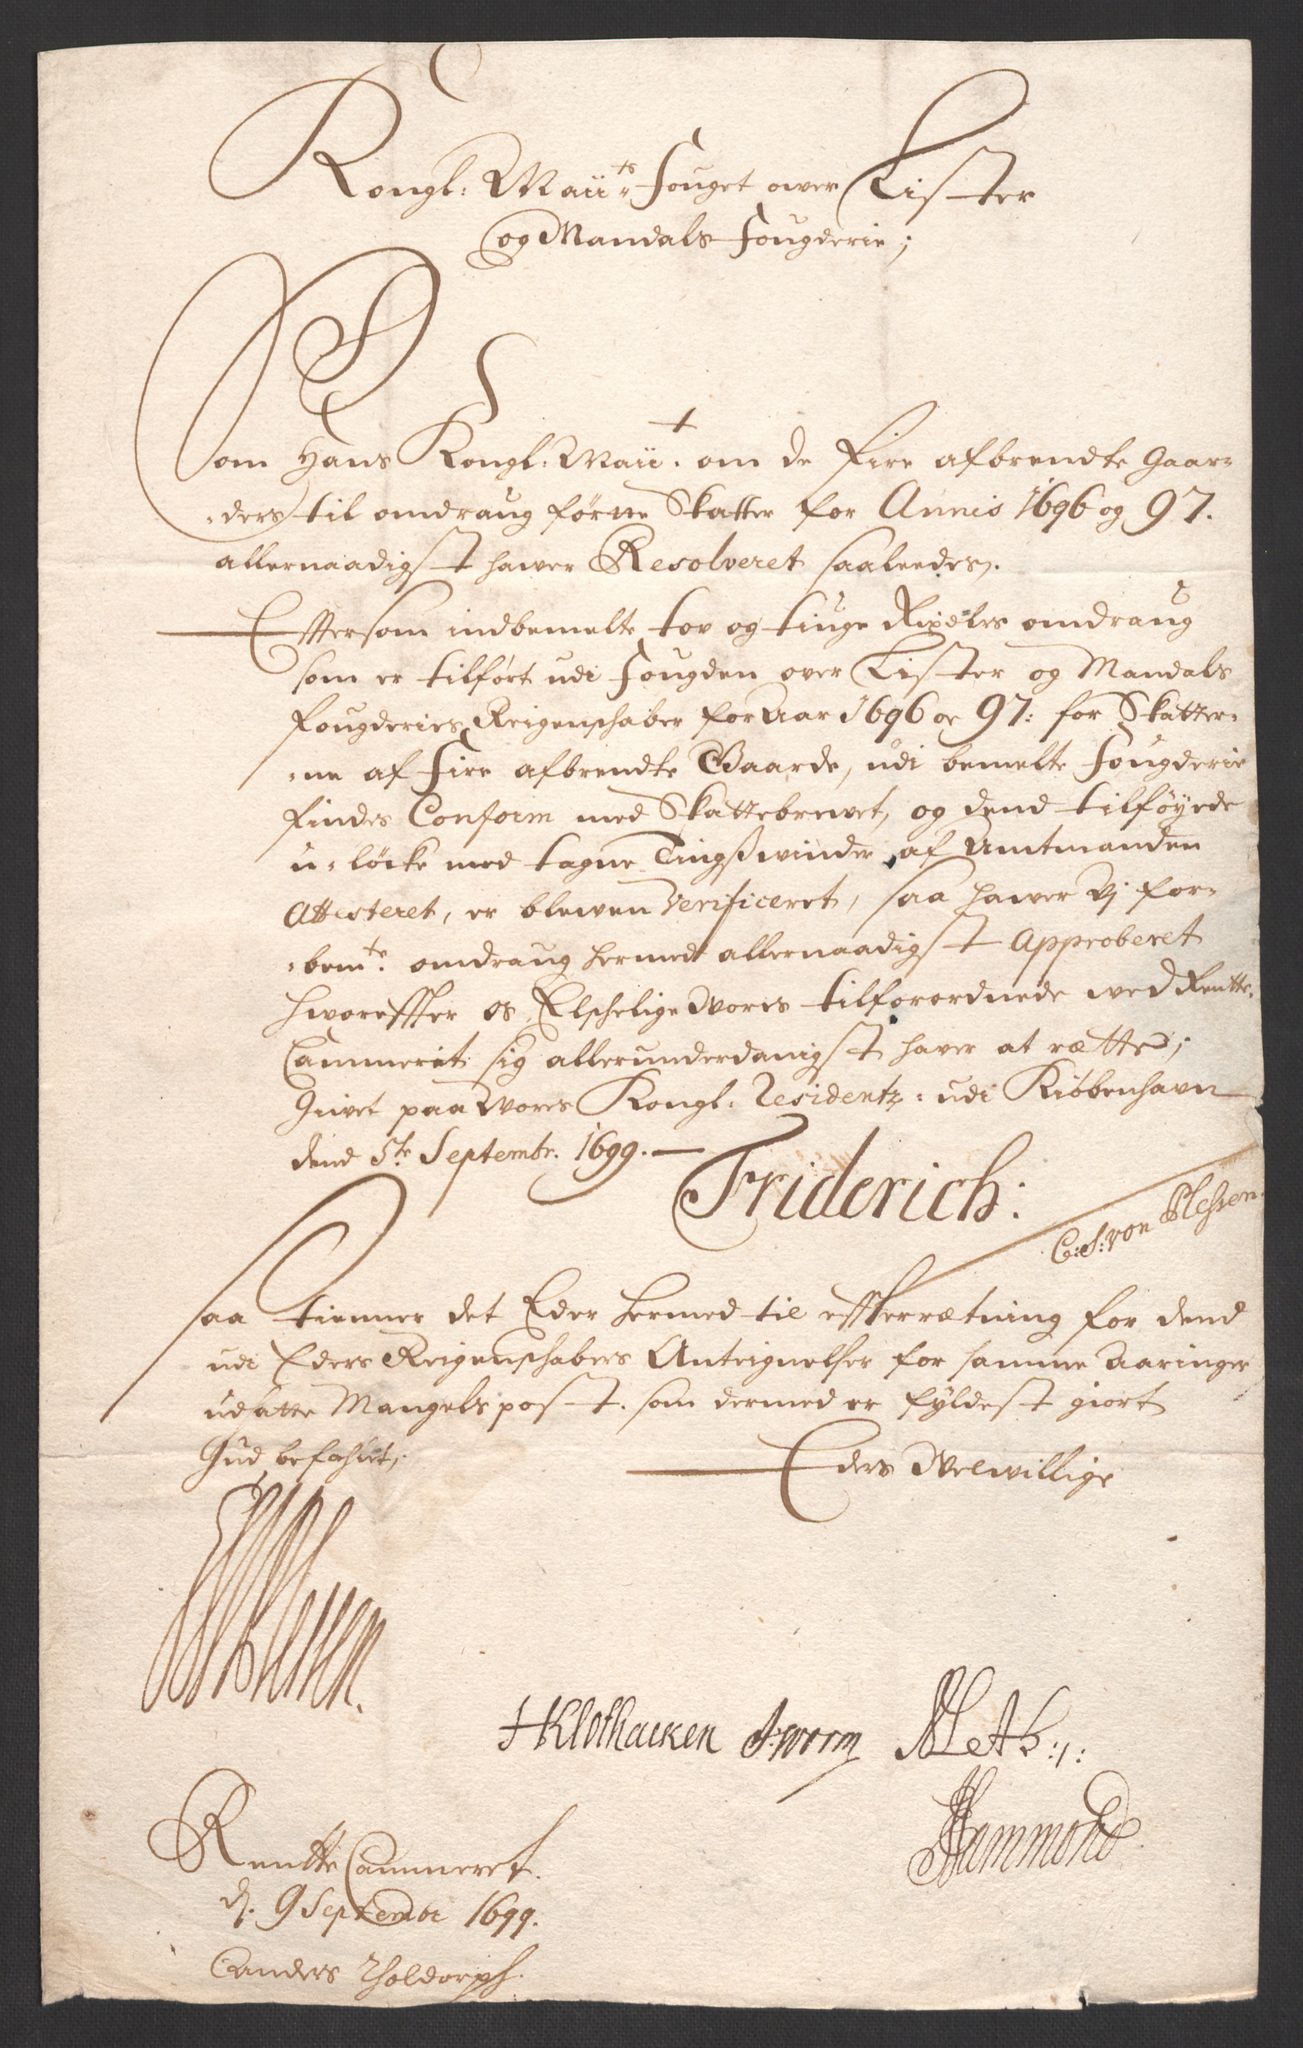 Kongl: Maiits Fouget ower Lister
og Mandals Fougderie;
Som Hans Kongl: Maiit om de Fire afbrendte Gaar-
ders til omdraug førte Skatter for Annis 1696 og 97.
allernaadigst hawer Resolveret saaleedes.
Efftersom indbemelte tov og tiuge Rixdlrs omdraug
som er tilført udi Fougden over Lister og Mandals
Fougderies Reigenschaber for Aar 1696 oc 97: for Skatter-
ne af Fire afbrendte Gaarde, udi bemelte Fougderie
findes Conform med Skattebrevet, og dend tilføyede
u-løcke med tagne Tingsswinder af Amtmanden
Attesteret, er blewen Verificeret, saa hawer Vj for-
bemte: omdraug hermed allernaadigst Approberet
hworeffter os Elschelige Wores tilforordnede wed Rentte-
Cammerit sig allerunderdanigst haver at rætte;
Giivet paa Wores Kongl: Residentz: udi Kiøbenhavn
dend 5te Septembr. 1699.
Friderich:
C:S:von Plessen.
Saa tienner det Eder hermed til effterrætning for dend
udi Eders Reigenschabers Anteignelser for samme Aaringer
udsatte Mangelspost. som dermed er fyldest giort
Gud befahlet;
Eders Welwillige
CSvPlessen.
HKlothacken J:worm Meth:
Hammond
Rentte Cammeret.
dj. 9 Septembr 1699.
Anders Tholdorph.